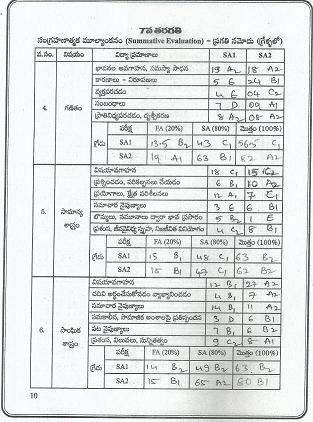 7వ తరగతి
సంగ్రహణాత్మక మూల్యాంకనం (Summative Evaluation) - ప్రగతి నమోదు (గ్రేడ్లలో)
వ.సం. విషయం విద్యా ప్రమాణాలు SA1 SA2
4. గణితం
భావనల అవగాహన, సమస్యా సాధన 19 A2 18 A2
కారణాలు - నిరూపణలు 5 E 24 B1
వ్యక్తపరచడం 4 E 04 C2
సంబంధాలు 7 D 09 A1
ప్రాతినిధ్యపరచడం, దృశ్యీకరణ 8 A2 08 A2
గ్రేడు పరీక్ష FA (20%) SA (80%) మొత్తం (100%)
SA1 13.5 B2 43 C1 56.5 C1
SA2 19 A1 63 B1 82 A2
5. సామాన్య శాస్త్రం
విషయావగాహన 18 C1 15 C2
ప్రశ్నించడం, పరికల్పనలు చేయడం 6 B1 10 A2
ప్రయోగాలు, క్షేత్ర పరిశీలనలు 12 A1 7 C1
సమాచార నైపుణ్యాలు 3 E 6 B1
బొమ్మలు, నమూనాలు ద్వారా భావ ప్రసారం 5 B2 1 E
ప్రశంస, జీవవైవిధ్య స్పృహ, నిజజీవిత వినియోగం 4 C2 8 B1
గ్రేడు పరీక్ష FA (20%) SA (80%) మొత్తం (100%)
SA1 15 B1 48 C1 63 B2
SA2 15 B1 47 C1 62 B2
6. సాంఘిక శాస్త్రం
విషయావగాహన 12 B1 27 A2
చదివి అర్థంచేసుకోవడం వ్యాఖ్యానించడం 4 B1 7 A2
సమాచార నైపుణ్యాలు 14 B1 11 A2
సమకాలీన, సామాజిక అంశాలపై ప్రతిస్పందన 3 D 6 B1
పట నైపుణ్యాలు 7 B1 6 B2
ప్రశంస, విలువలు, సున్నితత్వం 9 C2 8 A1
గ్రేడు పరీక్ష FA (20%) SA (80%) మొత్తం (100%)
SA1 14 B2 49 B2 63 B2
SA2 15 B1 65 A2 80 B1
10